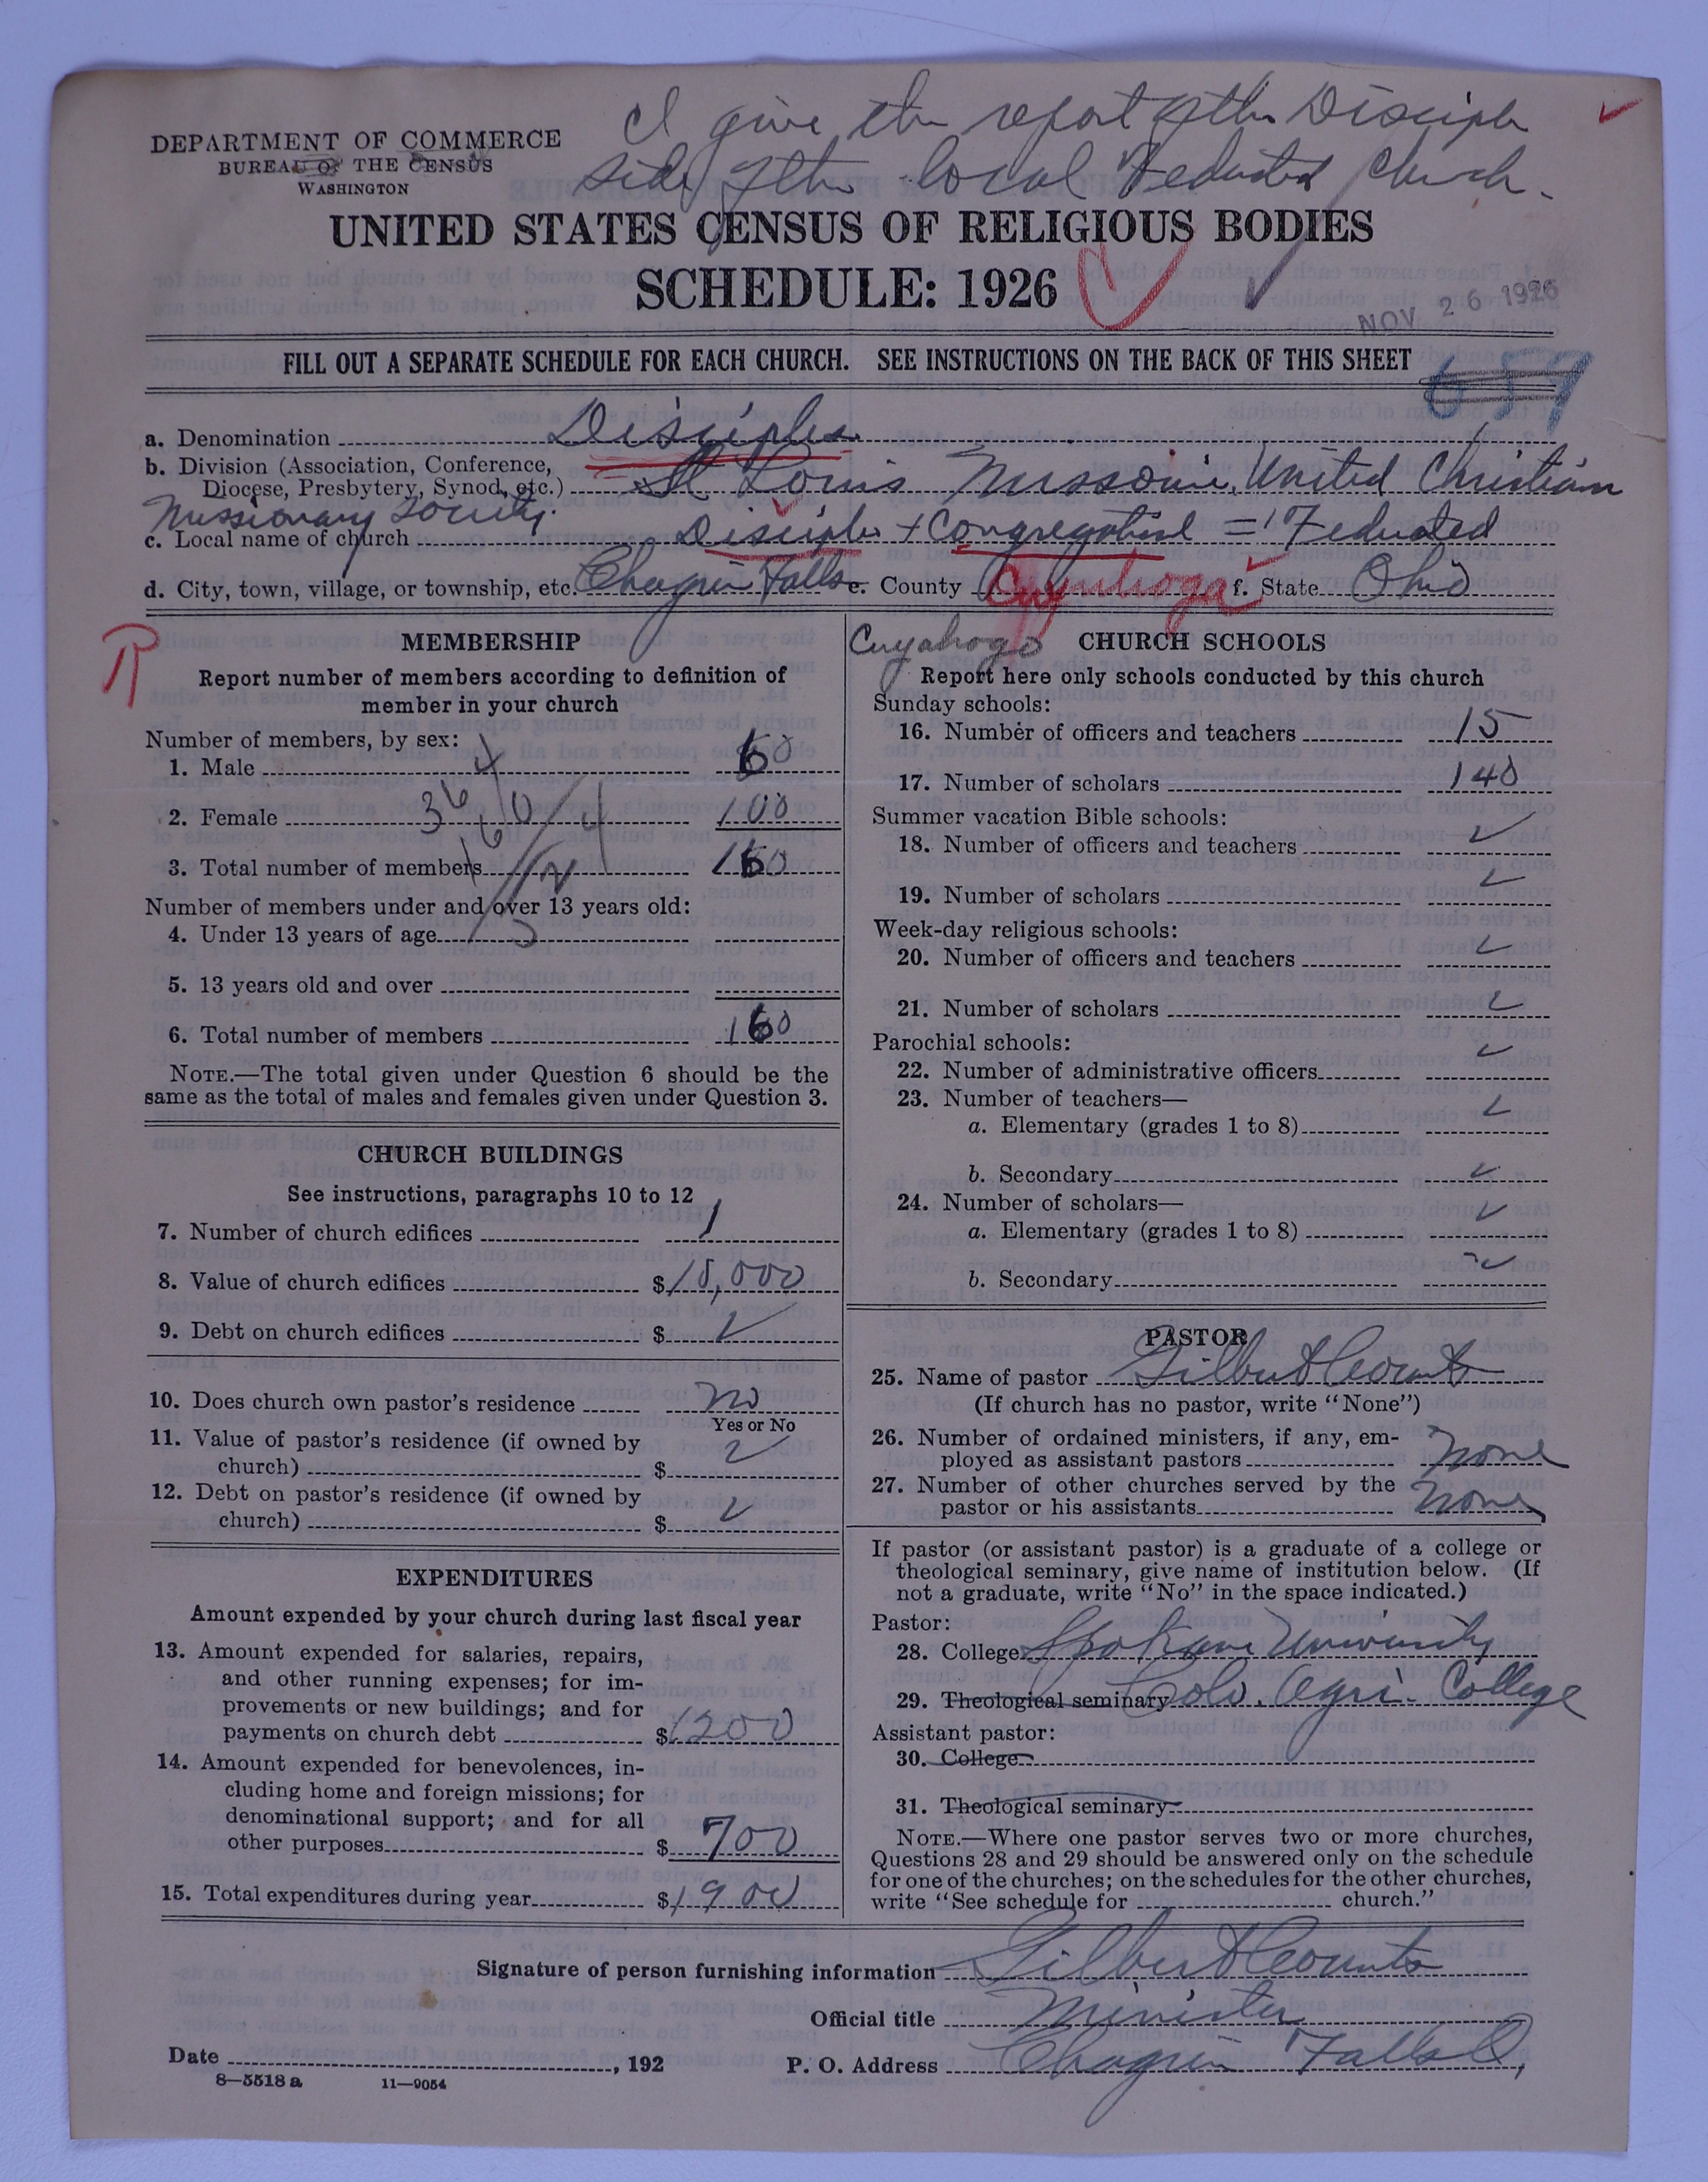 I give the report of the Disciple
side of the local Federated Church.
DEPARTMENT OF COMMERCE
BUREAU OF THE CENSUS
WASHINGTON
UNITED STATES CENSUS OF RELIGIOUS BODIES
SCHEDULE: 1926
NOV 26 1926
FILL OUT A SEPARATE SCHEDULE FOR EACH CHURCH. SEE INSTRUCTIONS ON THE BACK OF THIS SHEET
657
a. Denomination Disciples
b. Division (Association, Conference,
Diocese, Presbytery, Synod, etc.) St Louis Missouri, United Christian
Missionary Society.
c. Local name of church Disciples + Congregational = Federated
d. City, town, village, or township, etc. Chagrin Falls e. County Cuyahoga f. State Ohio
Cuyahoga
R
MEMBERSHIP
Report number of members according to definition of
member in your church
Number of members, by sex:
1. Male 60
2. Female 100
3. Total number of members 160
Number of members under and over 13 years old:
4. Under 13 years of age
5. 13 years old and over
6. Total number of members 160
NOTE.—The total given under Question 6 should be the
same as the total of males and females given under Question 3.
CHURCH BUILDINGS
See instructions, paragraphs 10 to 12
7. Number of church edifices 1
8. Value of church edifices $10,000
9. Debt on church edifices $
10. Does church own pastor's residence no
Yes or No
11. Value of pastor's residence (if owned by
church) $
12. Debt on pastor's residence (if owned by
church) $
EXPENDITURES
Amount expended by your church during last fiscal year
13. Amount expended for salaries, repairs,
and other running expenses; for im-
provements or new buildings; and for
payments on church debt $1200
14. Amount expended for benevolences, in-
cluding home and foreign missions; for
denominational support; and for all
other purposes $700
15. Total expenditures during year $1900
CHURCH SCHOOLS
Report here only schools conducted by this church
Sunday schools:
16. Number of officers and teachers 15
17. Number of scholars 140
Summer vacation Bible schools:
18. Number of officers and teachers
19. Number of scholars
Week-day religious schools:
20. Number of officers and teachers
21. Number of scholars
Parochial schools:
22. Number of administrative officers
23. Number of teachers—
a. Elementary (grades 1 to 8)
b. Secondary
24. Number of scholars—
a. Elementary (grades 1 to 8)
b. Secondary
PASTOR
25. Name of pastor Gilbert Counts
(If church has no pastor, write "None")
26. Number of ordained ministers, if any, em-
ployed as assistant pastors none
27. Number of other churches served by the
pastor or his assistants none
If pastor (or assistant pastor) is a graduate of a college or
theological seminary, give name of institution below. (If
not a graduate, write "No" in the space indicated.)
Pastor:
28. College Spokane University
29. Theological seminary Colo. Agri. College
Assistant pastor:
30. College
31. Theological seminary
NOTE.—Where one pastor serves two or more churches,
Questions 28 and 29 should be answered only on the schedule
for one of the churches; on the schedules for the other churches,
write "See schedule for church."
Signature of person furnishing information Gilbert Counts
Official title Minister
Date , 192 P. O. Address Chagrin Falls O,
8—5518 a 11—9054